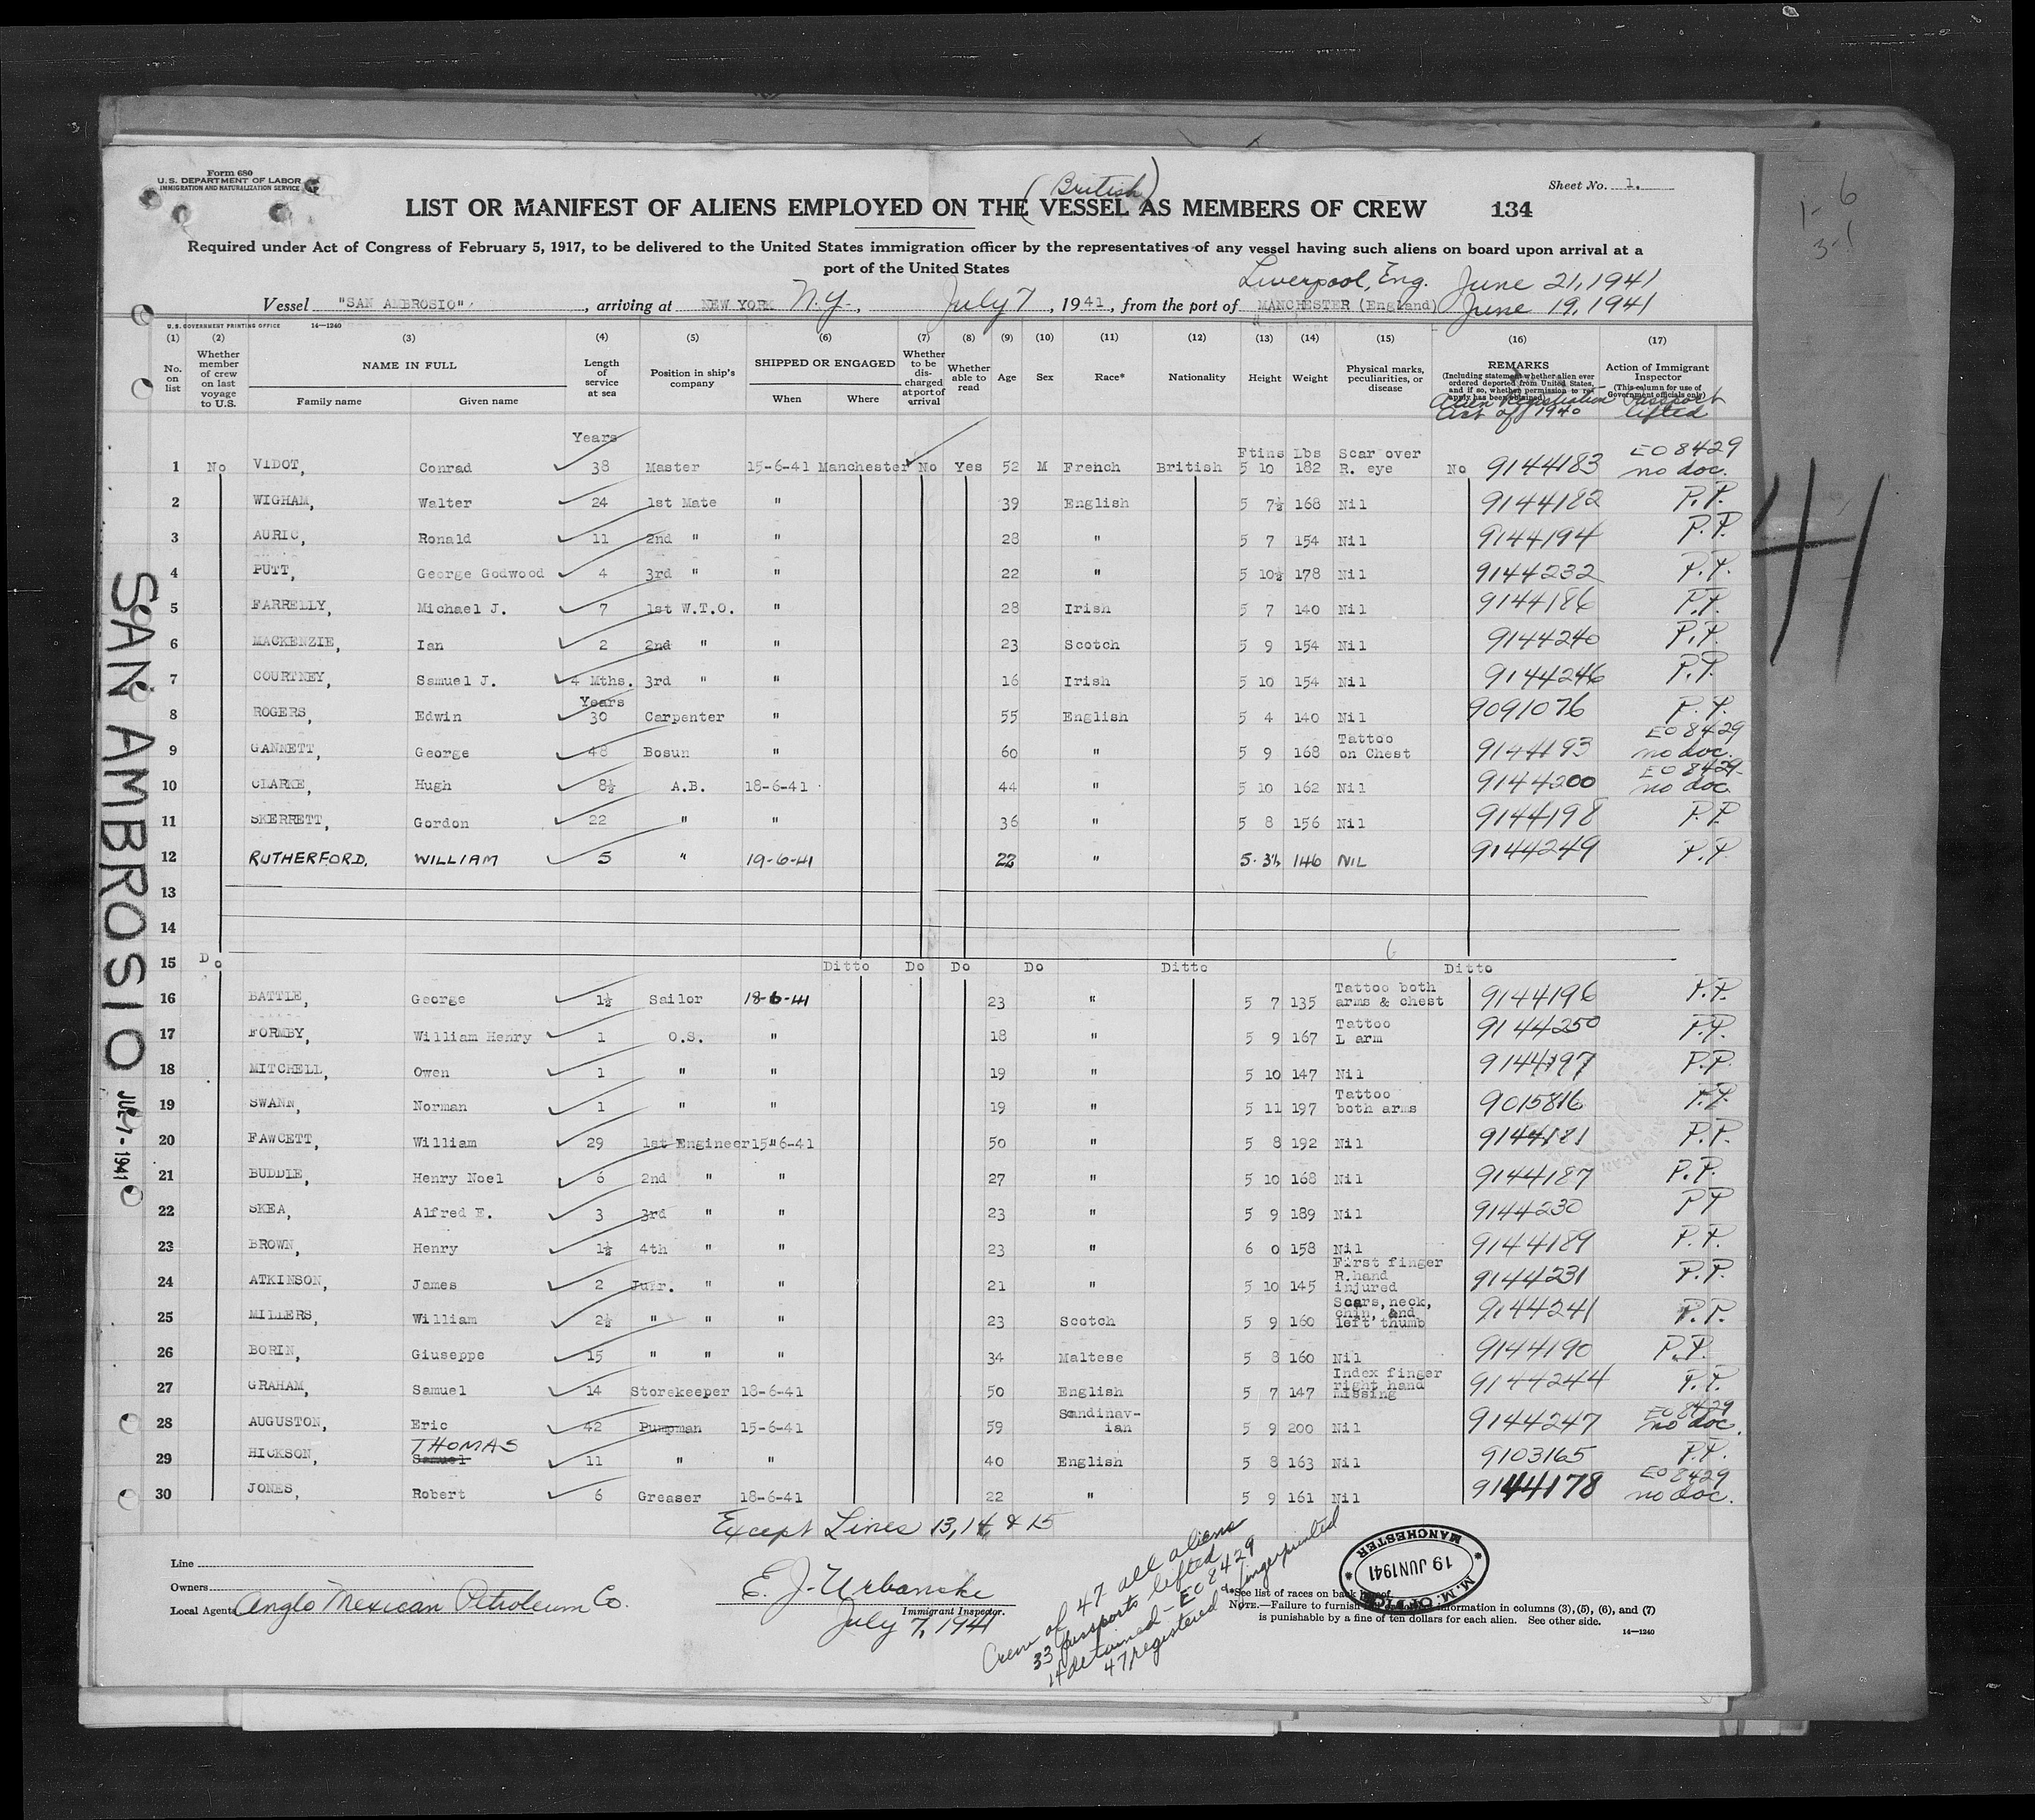 Form 680
U.S. DEPARTMENT OF LABOR
IMMIGRATION AND NATURALIZATION SERVICE
Sheet No. 1.
(British)
LIST OR MANIFEST OF ALIENS EMPLOYED ON THE VESSEL AS MEMBERS OF CREW 134
Required under Act of Congress of February 5, 1917, to be delivered to the United States immigration officer by the representatives of any vessel having such aliens on board upon arrival at a
port of the United States
Liverpool, Eng. June 21, 1941
Vessel "SAN AMBROSIO", arriving at NEW YORK N.Y., July 7, 1941, from the port of MANCHESTER (England) June 19, 1941
U.S. GOVERNMENT PRINTING OFFICE 14—1240
(1) (2) (3) (4) (5) (6) (7) (8) (9) (10) (11) (12) (13) (14) (15) (16) (17)
No. on list
Whether member of crew on last voyage to U.S.
NAME IN FULL
Family name Given name
Length of service at sea
Position in ship's company
SHIPPED OR ENGAGED
When Where
Whether to be discharged at port of arrival
Whether able to read
Age
Sex
Race*
Nationality
Height
Weight
Physical marks, peculiarities, or disease
REMARKS
(Including statement whether alien ever ordered deported from United States, and if so, whether permission to reapply has been obtained)
Alien Registration Act of 1940
Action of Immigrant Inspector
(This column for use of Government officials only)
Passport lifted
Years
Ftins Lbs
1 No VIDOT, Conrad 38 Master 15-6-41 Manchester No Yes 52 M French British 5 10 182 Scar over R. eye No 9144183 EO 8429 no doc.
2 WIGHAM, Walter 24 1st Mate " 39 English 5 7½ 168 Nil 9144182 P.P.
3 AURIC, Ronald 11 2nd " " 28 " 5 7 154 Nil 9144194 P.P.
4 PUTT, George Godwood 4 3rd " " 22 " 5 10½ 178 Nil 9144232 P.P.
5 FARRELLY, Michael J. 7 1st W.T.O. " 28 Irish 5 7 140 Nil 9144186 P.P.
6 MACKENZIE, Ian 2 2nd " " 23 Scotch 5 9 154 Nil 9144240 P.P.
7 COURTNEY, Samuel J. 4 Mths. 3rd " " 16 Irish 5 10 154 Nil 9144246 P.P.
Years
8 ROGERS, Edwin 30 Carpenter " 55 English 5 4 140 Nil 9091076 P.P.
9 GANNETT, George 48 Bosun " 60 " 5 9 168 Tattoo on Chest 9144193 EO 8429 no doc.
10 CLARKE, Hugh 8½ A.B. 18-6-41 44 " 5 10 162 Nil 9144200 EO 8429 no doc.
11 SKERRETT, Gordon 22 " " 36 " 5 8 156 Nil 9144198 P.P.
12 RUTHERFORD, WILLIAM 5 " 19-6-41 22 " 5. 3½ 146 NIL 9144249 P.P.
13
14
15 Do Ditto Do Do Do Ditto Ditto
16 BATTLE, George 1½ Sailor 18-6-41 23 " 5 7 135 Tattoo both arms & chest 9144196 P.P.
17 FORMBY, William Henry 1 O.S. " 18 " 5 9 167 Tattoo L arm 9144250 P.P.
18 MITCHELL, Owen 1 " " 19 " 5 10 147 Nil 9144197 P.P.
19 SWANN, Norman 1 " " 19 " 5 11 197 Tattoo both arms 9015816 P.P.
20 FAWCETT, William 29 1st Engineer 15-6-41 50 " 5 8 192 Nil 9144181 P.P.
21 BUDDIE, Henry Noel 6 2nd " " 27 " 5 10 168 Nil 9144187 P.P.
22 SKEA, Alfred E. 3 3rd " " 23 " 5 9 189 Nil 9144230 PP
23 BROWN, Henry 1½ 4th " " 23 " 6 0 158 Nil 9144189 P.P.
24 ATKINSON, James 2 Junr. " " 21 " 5 10 145 First finger R.hand injured 9144231 P.P.
25 MILLERS, William 2½ " " " 23 Scotch 5 9 160 Scars, neck, chin, and left thumb 9144241 P.P.
26 BORIN, Giuseppe 15 " " " 34 Maltese 5 8 160 Nil 9144190 P.P.
27 GRAHAM, Samuel 14 Storekeeper 18-6-41 50 English 5 7 147 Index finger right hand missing 9144244 P.P.
28 AUGUSTON, Eric 42 Pumpman 15-6-41 59 Scandinav-ian 5 9 200 Nil 9144247 EO 8429 no doc.
29 HICKSON, THOMAS Samuel 11 " " 40 English 5 8 163 Nil 9103165 P.P.
30 JONES, Robert 6 Greaser 18-6-41 22 " 5 9 161 Nil 9144178 EO 8429 no doc.
Except Lines 13, 14, & 15
Line
Owners
Local Agents Anglo Mexican Petroleum Co.
E. J. Urbanske
Immigrant Inspector.
July 7, 1941
Crew of 47 all aliens
33 passports lifted
14 detained - EO 8429
47 registered & fingerprinted
M.M. OFFICE MANCHESTER 19 JUN 1941
*See list of races on back hereof.
NOTE.—Failure to furnish full or correct information in columns (3), (5), (6), and (7)
is punishable by a fine of ten dollars for each alien. See other side.
14—1240
SAN AMBROSIO JUL 7 - 1941